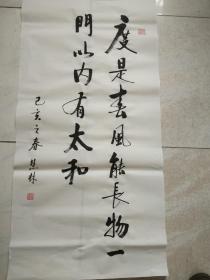 度是春風能長物一
門以内有太和
己亥之春